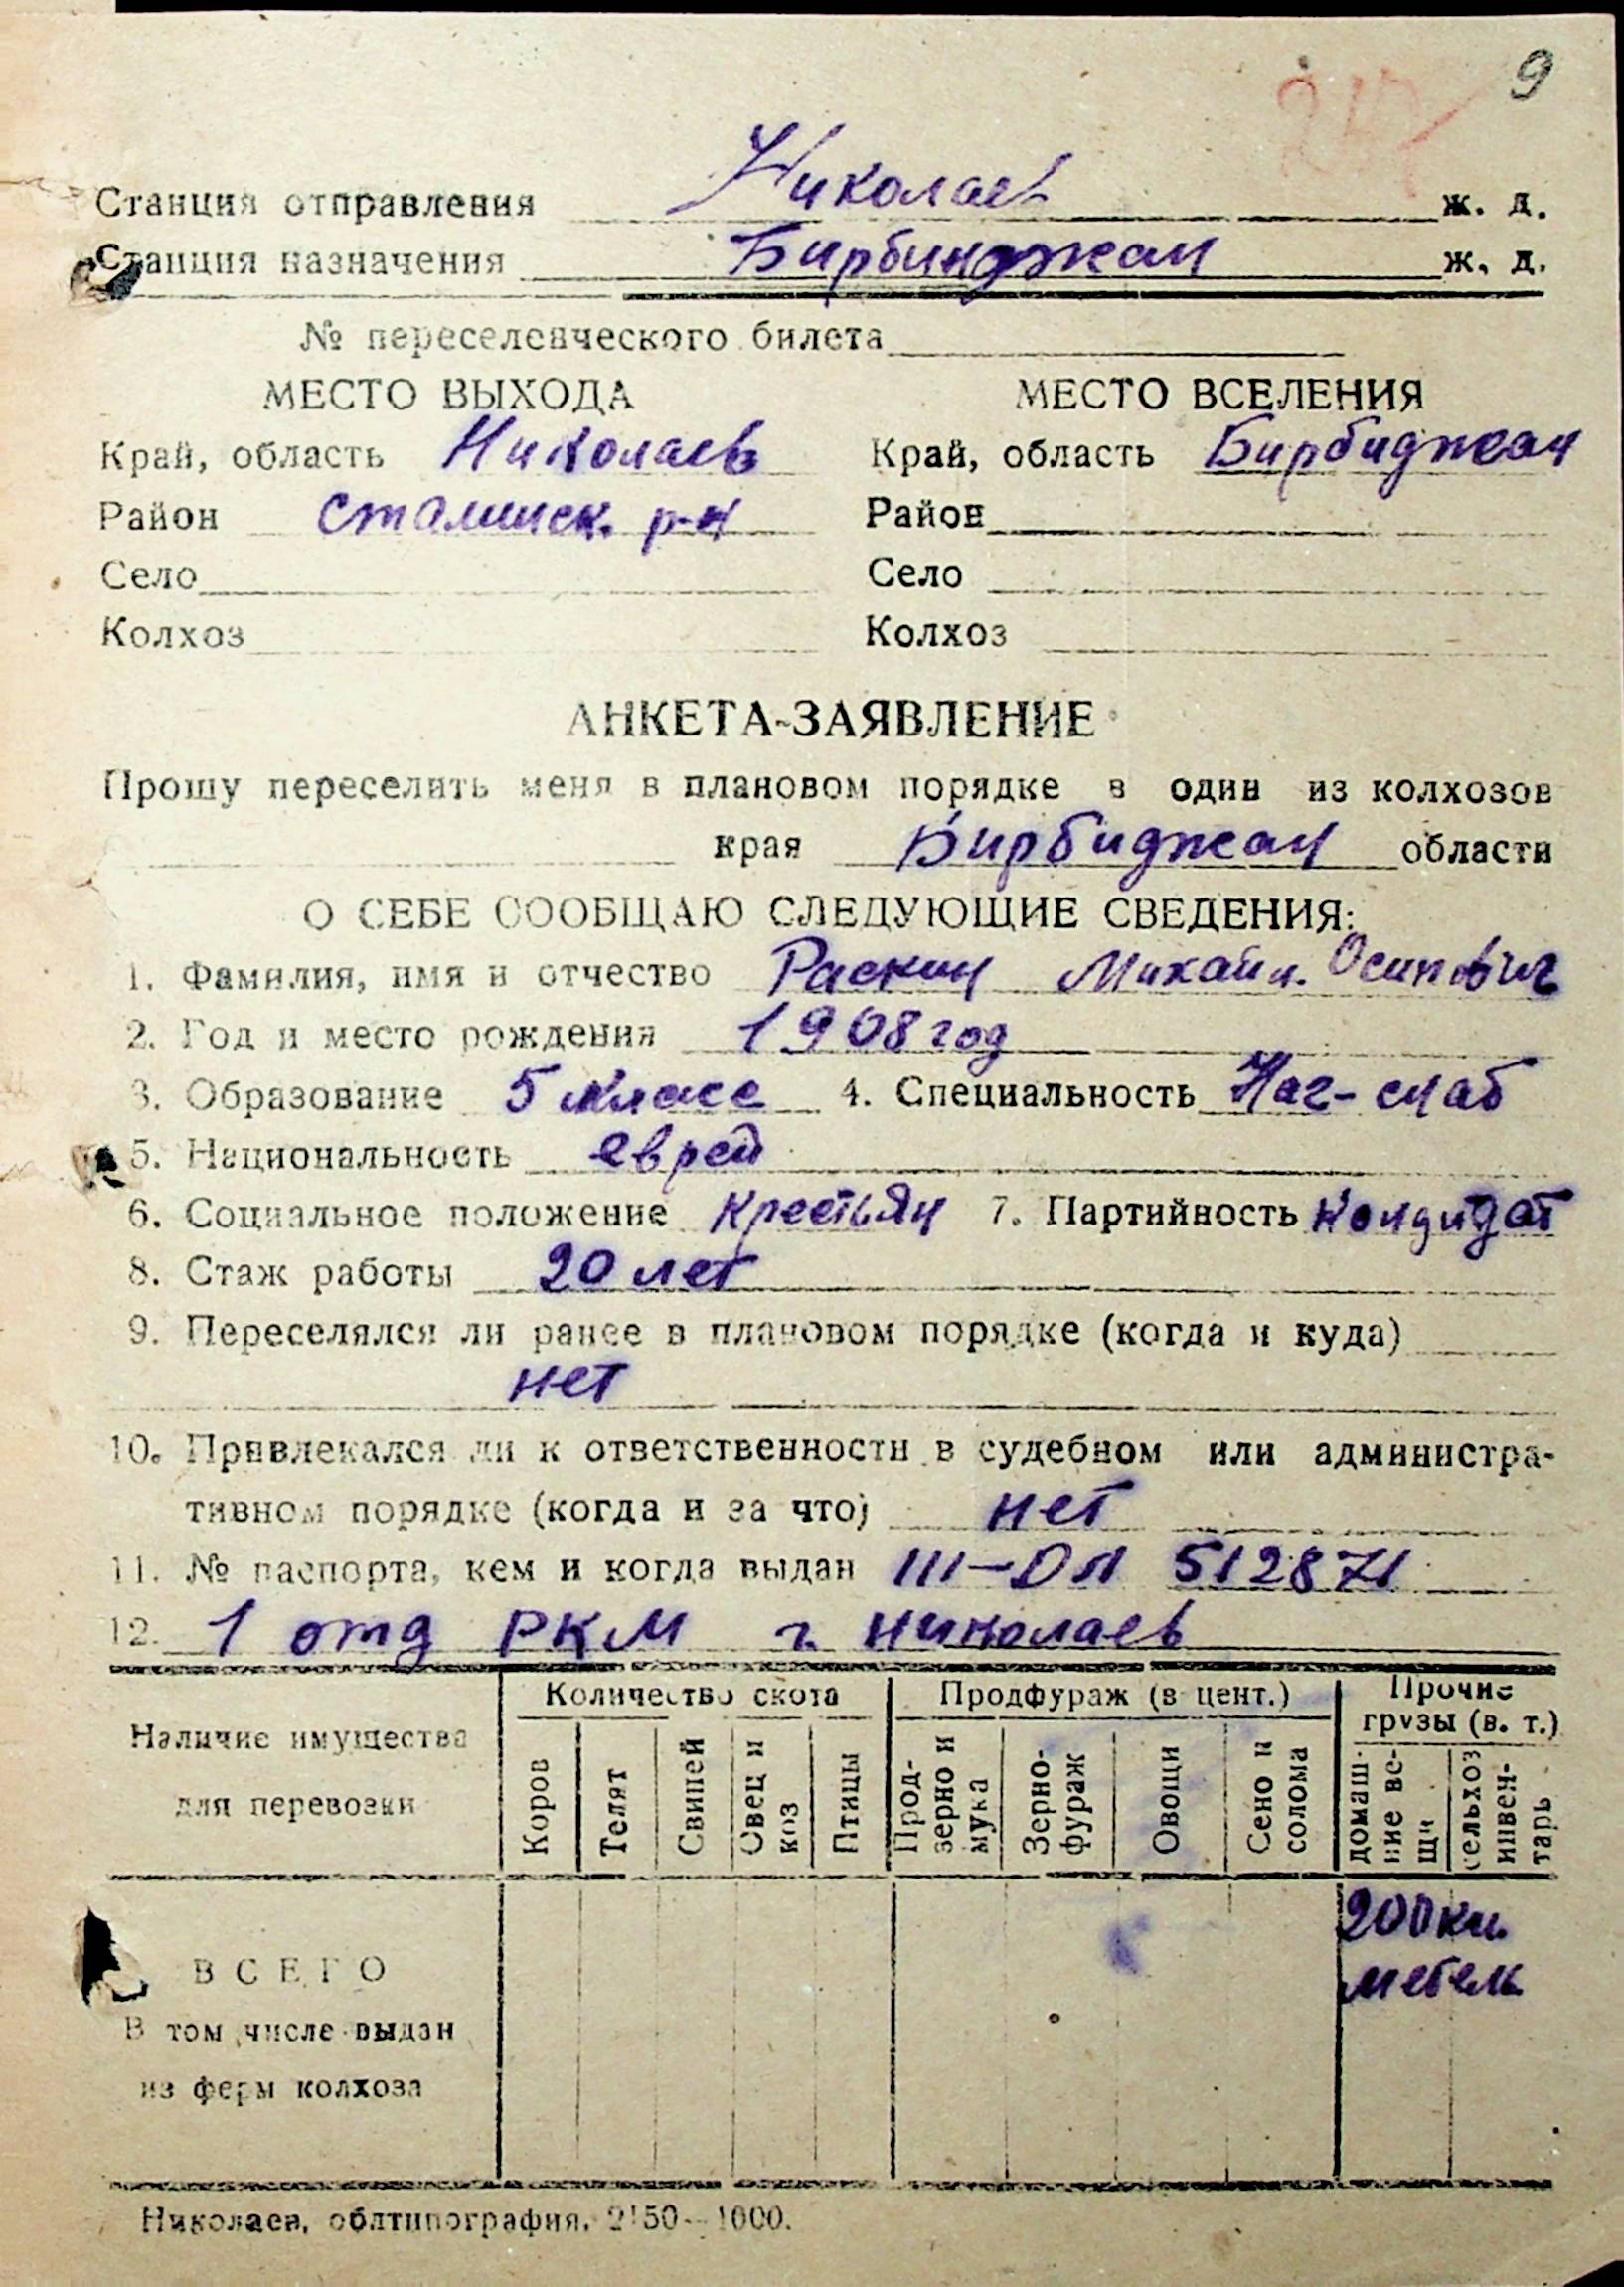 9
Станция отправления Николаев ж. д.
Станция назначения Бирбинджан ж. д.
№ переселенческого билета
МЕСТО ВЫХОДА МЕСТО ВСЕЛЕНИЯ
Край, область Николаев Край, область Бирбиджан
Район Сталинск. р-н Район
Село Село
Колхоз Колхоз
АНКЕТА-ЗАЯВЛЕНИЕ
Прошу переселить меня в плановом порядке в один из колхозов
края Бирбиджан области
О СЕБЕ СООБЩАЮ СЛЕДУЮЩИЕ СВЕДЕНИЯ:
1. Фамилия, имя и отчество Раскин Михаил. Осипович
2. Год и место рождения 1908 год
3. Образование 5 класс 4. Специальность Наг-снаб
5. Национальность еврей
6. Социальное положение Крестьян 7. Партийность Кондидат
8. Стаж работы 20 лет
9. Переселялся ли ранее в плановом порядке (когда и куда)
нет
10. Привлекался ли к ответственности в судебном или администра-
тивном порядке (когда и за что) нет
11. № паспорта, кем и когда выдан III-ОЛ 512871
12. 1 отд РКМ г. Николаев
Наличие имущества для перевозки
Количество скота Продфураж (в цент.) Прочие грузы (в. т.)
Коров Телят Свиней Овец и коз Птицы Прод-зерно и мука Зерно-фураж Овощи Сено и солома домаш-ние ве-щи сельхоз инвен-тарь
ВСЕГО 200 кил.
мебель
В том числе выдан
из ферм колхоза
Николаев, облтипография. 2150—1000.